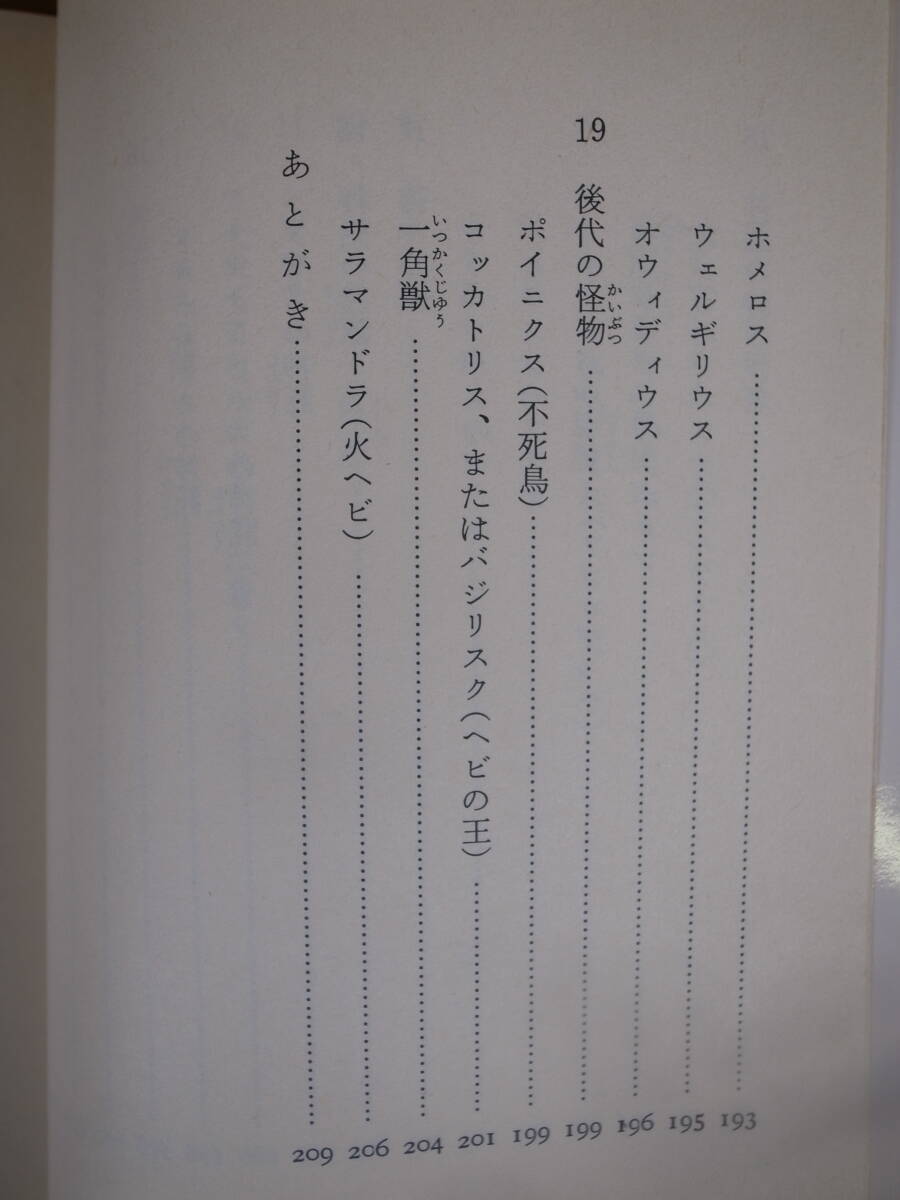 ホメロス……………………193
ウェルギリウス……………………195
オウィディウス……………………196
19 後代の怪物……………………199
ポイニクス(不死鳥)……………………199
コッカトリス、またはバジリスク(ヘビの王)……………………201
一角獣……………………204
サラマンドラ(火ヘビ)……………………206
あとがき……………………209